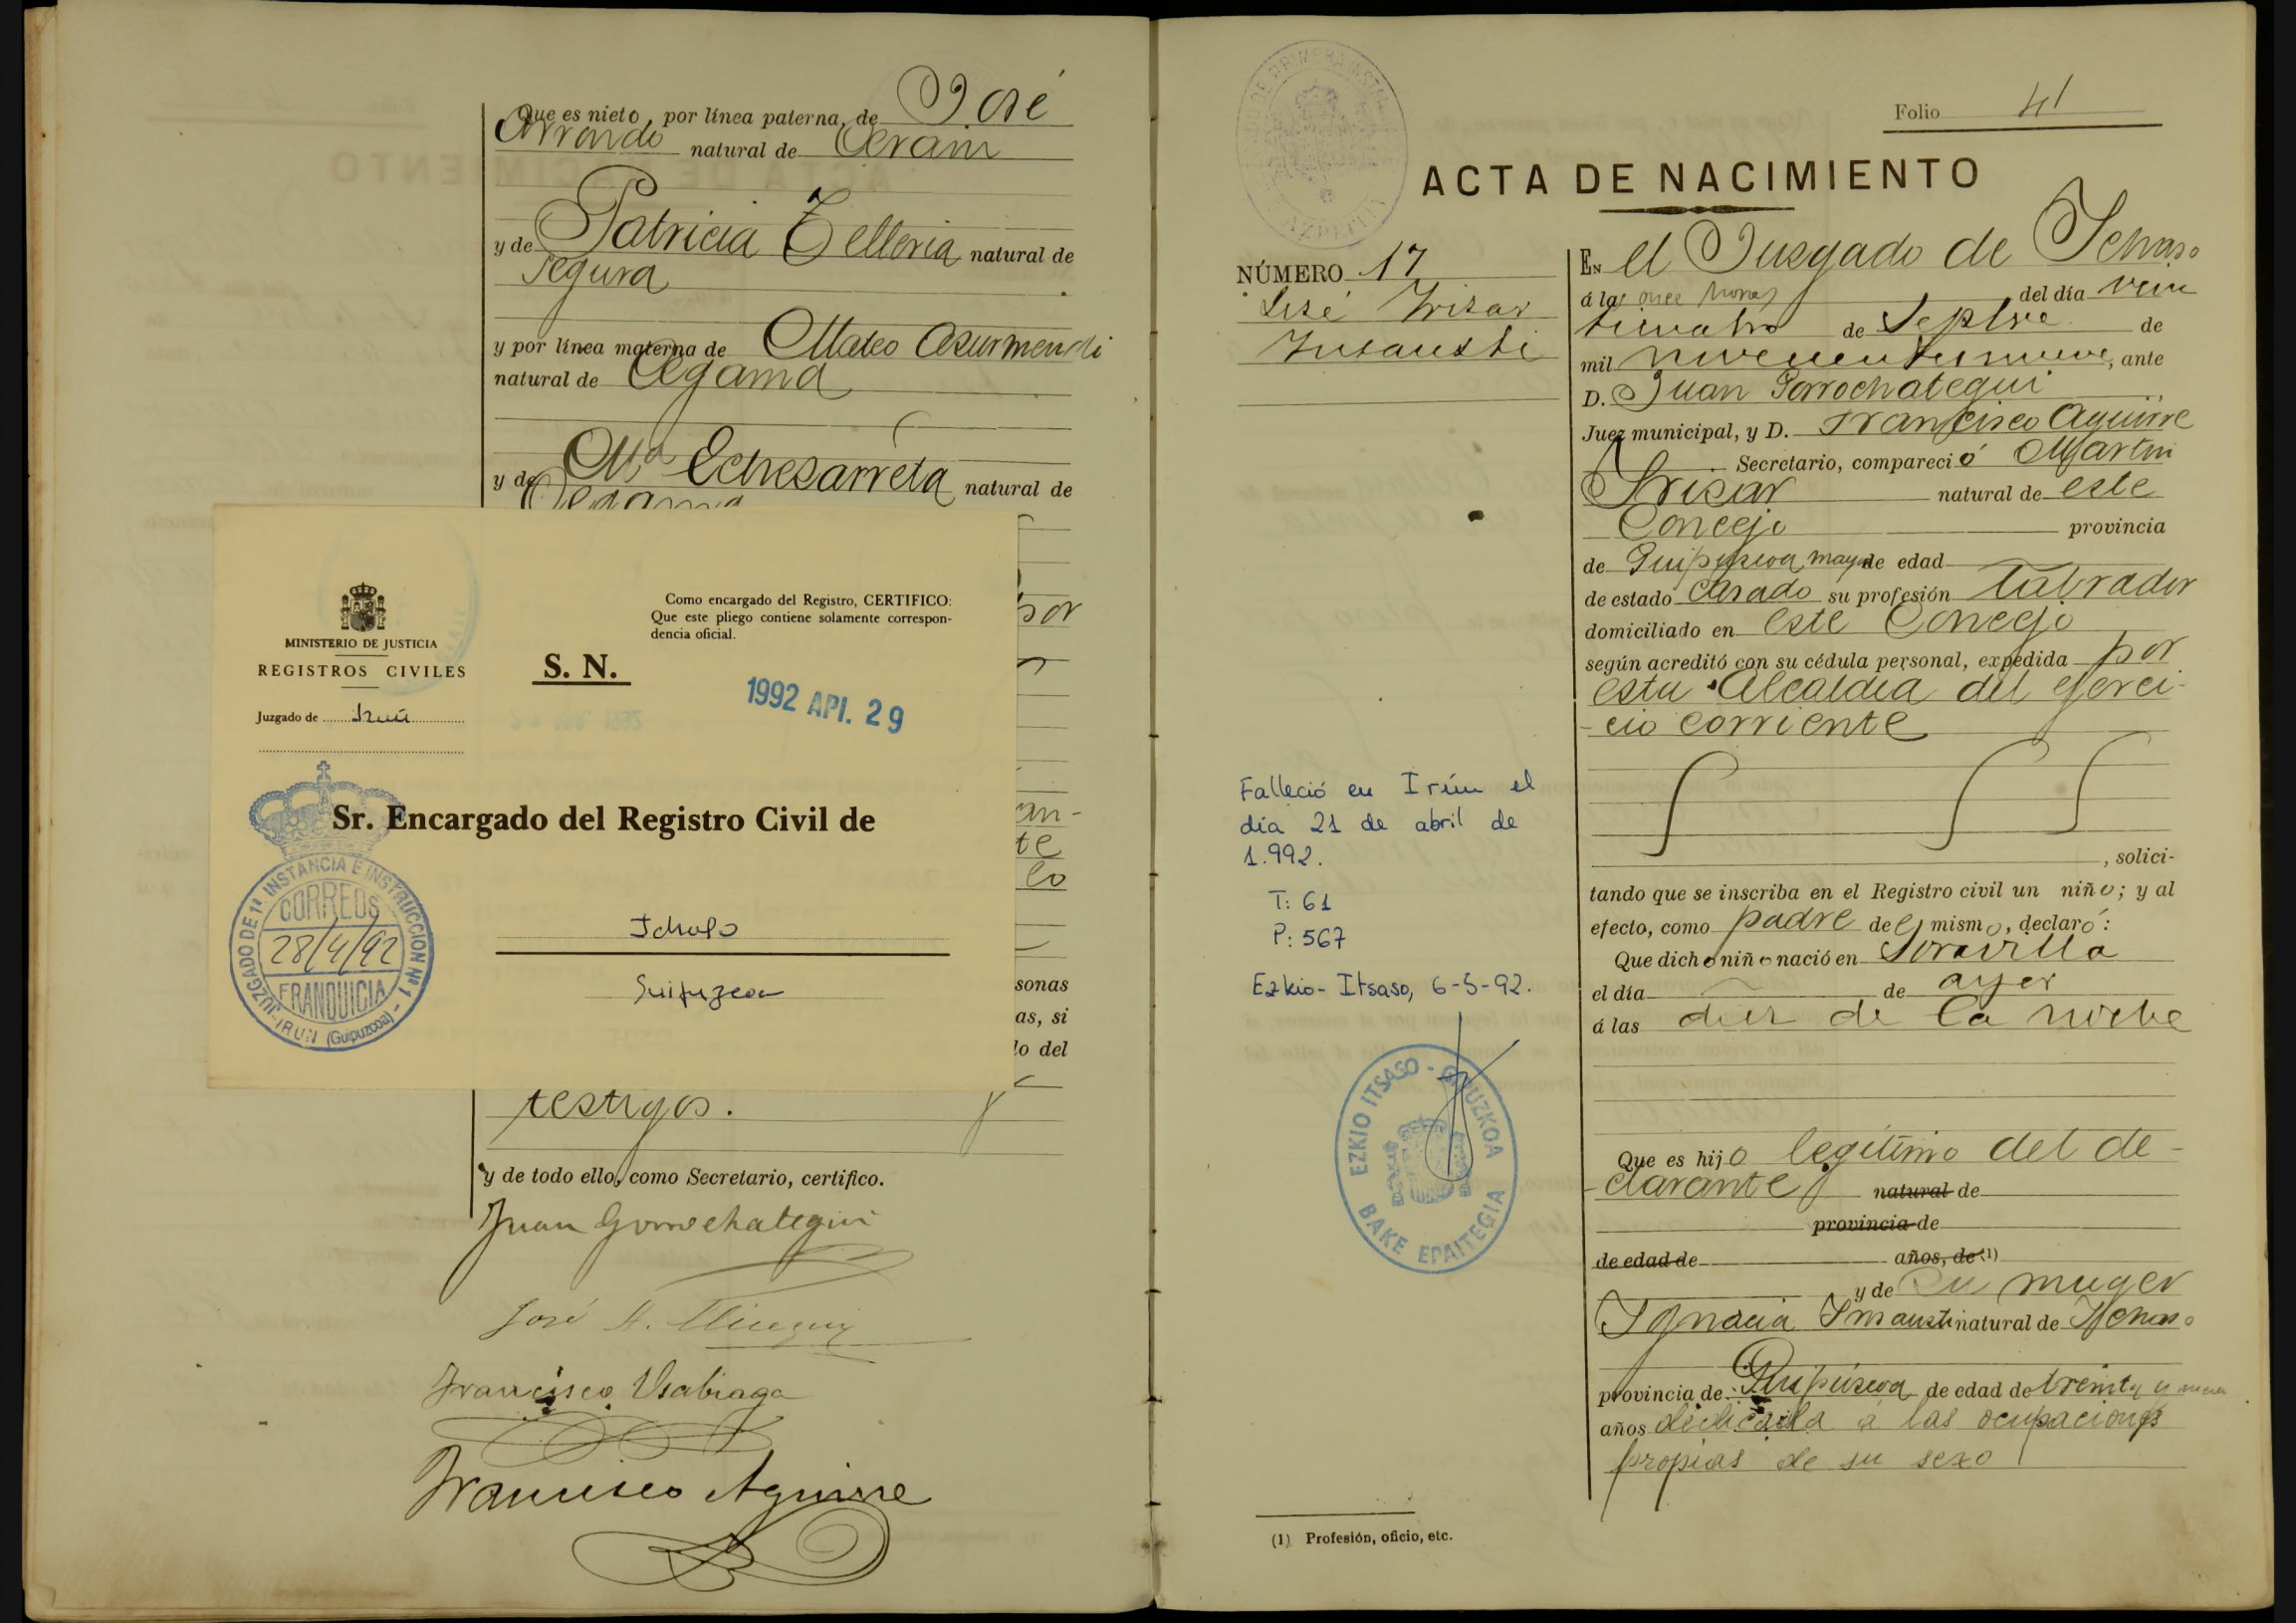 Que es nieto, por línea paterna, de José
Arrondo natural de Cerain
y de Patricia Telleria natural de
Segura
y por línea materna de Mateo Asurmendi
natural de Cegama
y de Mª Echesarreta natural de
Cegama
MINISTERIO DE JUSTICIA
REGISTROS CIVILES
Juzgado de Irún
S. N.
Como encargado del Registro, CERTIFICO:
Que este pliego contiene solamente correspon-
dencia oficial.
1992 API. 29
Sr. Encargado del Registro Civil de
Ichaso
Guipuzcoa
JUZGADO DE 1ª INSTANCIA E INSTRUCCION Nº 1 - IRUN (Guipuzcoa)
CORREOS
28/4/92
FRANQUICIA
por
an-
te
lo
sonas
as, si
lo del
testigos.
y de todo ello, como Secretario, certifico.
Juan Gorrochategui
José
Francisco Usabiaga
Francisco Aguirre
Folio 41
ACTA DE NACIMIENTO
NÚMERO 17
José Irizar
Insausti
Falleció en Irún el
día 21 de abril de
1.992.
T: 61
P: 567
Ezkio-Itsaso, 6-5-92.
EZKIO ITSASO - GIPUZKOA
BAKE EPAITEGIA
EN el Jusgado de Ichaso
á las once horas del día vein
ticuatro de Septbre de
mil novecientos nueve, ante
D. Juan Gorrochategui
Juez municipal, y D. Francisco Aguirre
Secretario, compareció Martin
Irisar natural de este
Concejo provincia
de Guipuscoa mayor de edad
de estado casado su profesión labrador
domiciliado en este Concejo
según acreditó con su cédula personal, expedida por
esta Alcaldia del ejerci-
-cio corriente
, solici-
tando que se inscriba en el Registro civil un niño; y al
efecto, como padre del mismo, declaró:
Que dicho niño nació en Soravilla
el día de ayer
á las diez de la noche
Que es hijo legitimo del de-
-clarante natural de
provincia de
de edad de años, de (1)
y de su muger
Ignacia Insausti natural de Ichaso
provincia de Guipúscoa de edad de treinta y nueve
años dedicada á las ocupaciones
propias de su sexo
(1) Profesión, oficio, etc.